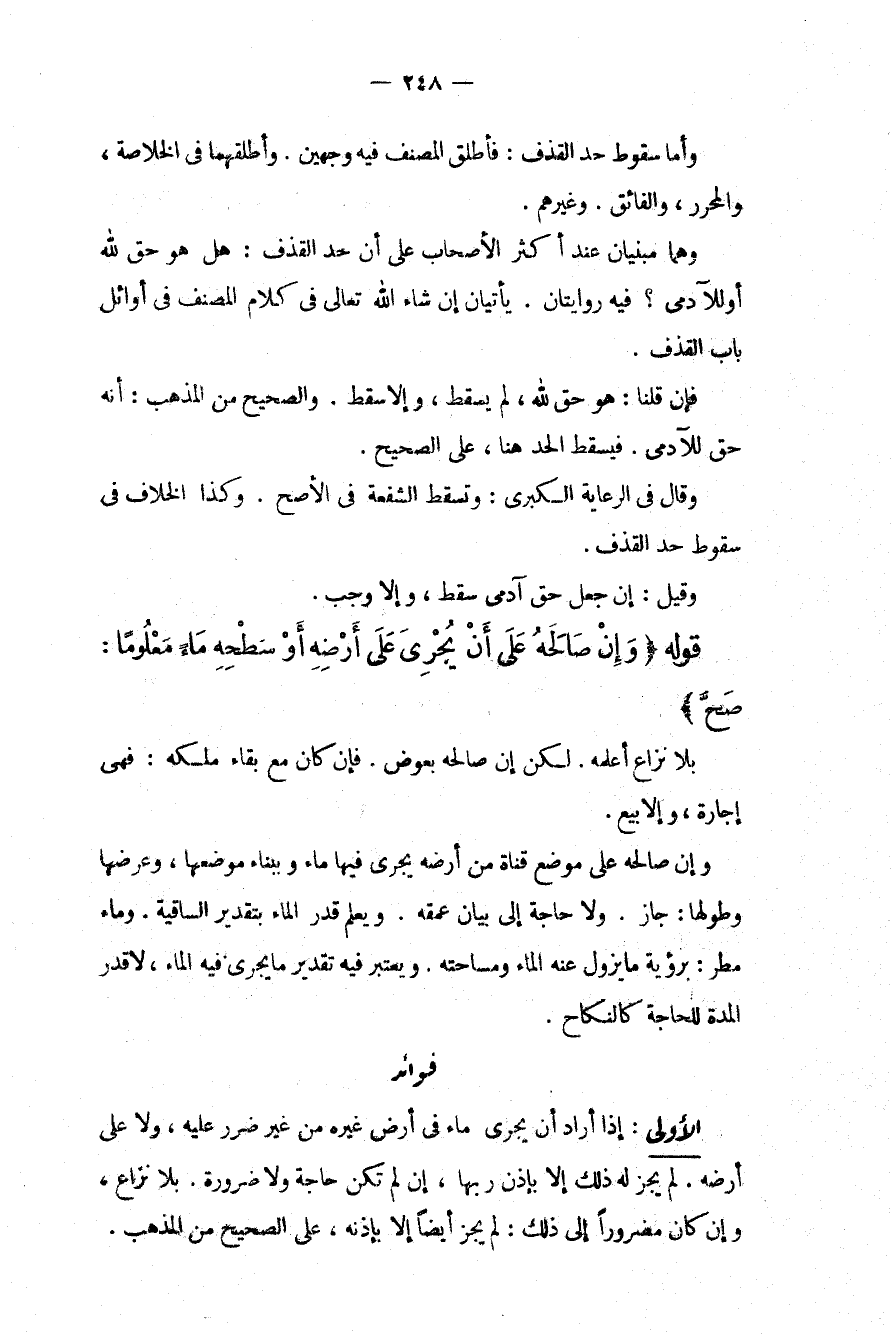 — ٢٤٨ —
وأما سقوط حد القذف : فأطلق المصنف فيه وجهين . وأطلقهما فى الخلاصة ،
والمحرر ، والفائق . وغيرهم .
وهما مبنيان عند أكثر الأصحاب على أن حد القذف : هل هو حق لله
أوللآدمى ؟ فيه روايتان . يأتيان إن شاء الله تعالى فى كلام المصنف فى أوائل
باب القذف .
فإن قلنا : هو حق لله ، لم يسقط ، وإلاسقط . والصحيح من المذهب : أنه
حق للآدمى . فيسقط الحد هنا ، على الصحيح .
وقال فى الرعاية الكبرى : وتسقط الشفعة فى الأصح . وكذا الخلاف فى
سقوط حد القذف .
وقيل : إن جعل حق آدمى سقط ، وإلا وجب .
قوله ﴿ وَإِنْ صَالَحَهُ عَلَى أَنْ يُجْرِىَ عَلَى أَرْضِهِ أَوْ سَطْحِهِ مَاءً مَعْلُومًا :
صَحَّ ﴾
بلا نزاع أعلمه . لكن إن صالحه بعوض . فإن كان مع بقاء ملكه : فهى
إجارة ، وإلابيع .
وإن صالحه على موضع قناة من أرضه يجرى فيها ماء وببناء موضعها ، وعرضها
وطولها : جاز . ولا حاجة إلى بيان عمقه . ويعلم قدر الماء بتقدير الساقية . وماء
مطر : برؤية مايزول عنه الماء ومساحته . ويعتبر فيه تقدير مايجرى فيه الماء ، لاقدر
المدة للحاجة كالنكاح .
فوائد
الأولى : إذا أراد أن يجرى ماء فى أرض غيره من غير ضرر عليه ، ولا على
أرضه . لم يجز له ذلك إلا بإذن ربها ، إن لم تكن حاجة ولا ضرورة . بلا نزاع ،
وإن كان مضروراً إلى ذلك : لم يجز أيضاً إلا بإذنه ، على الصحيح من المذهب .